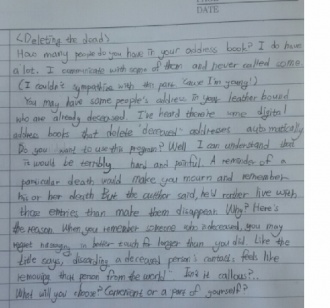 DATE
<Deleting the dead>
How many people do you have in your address book? I do have
a lot. I communicate with some of them and never called some
(I couldn't sympathise with this part 'cause I'm young!)
You may have some people's address in your leather bound
who are already deceased. I've heard there're some digital
address books that delete "deceased" addresses automatically
Do you want to use this program? Well I can understand that
it would be terribly hard and painful. A reminder of a
particular death would make you mourn and remember
his or her death But the author said, he'd rather live with
those entries than make them disappear. Why? Here's
the reason. When you remember someone who is deceased, you may
regret not in better touch for longer than you did. Like the
title says, discarding a deceased person's contacts feels like
removing that person from the world. Isn't it callous?..
What will you choose? Connections or a part of yourself?